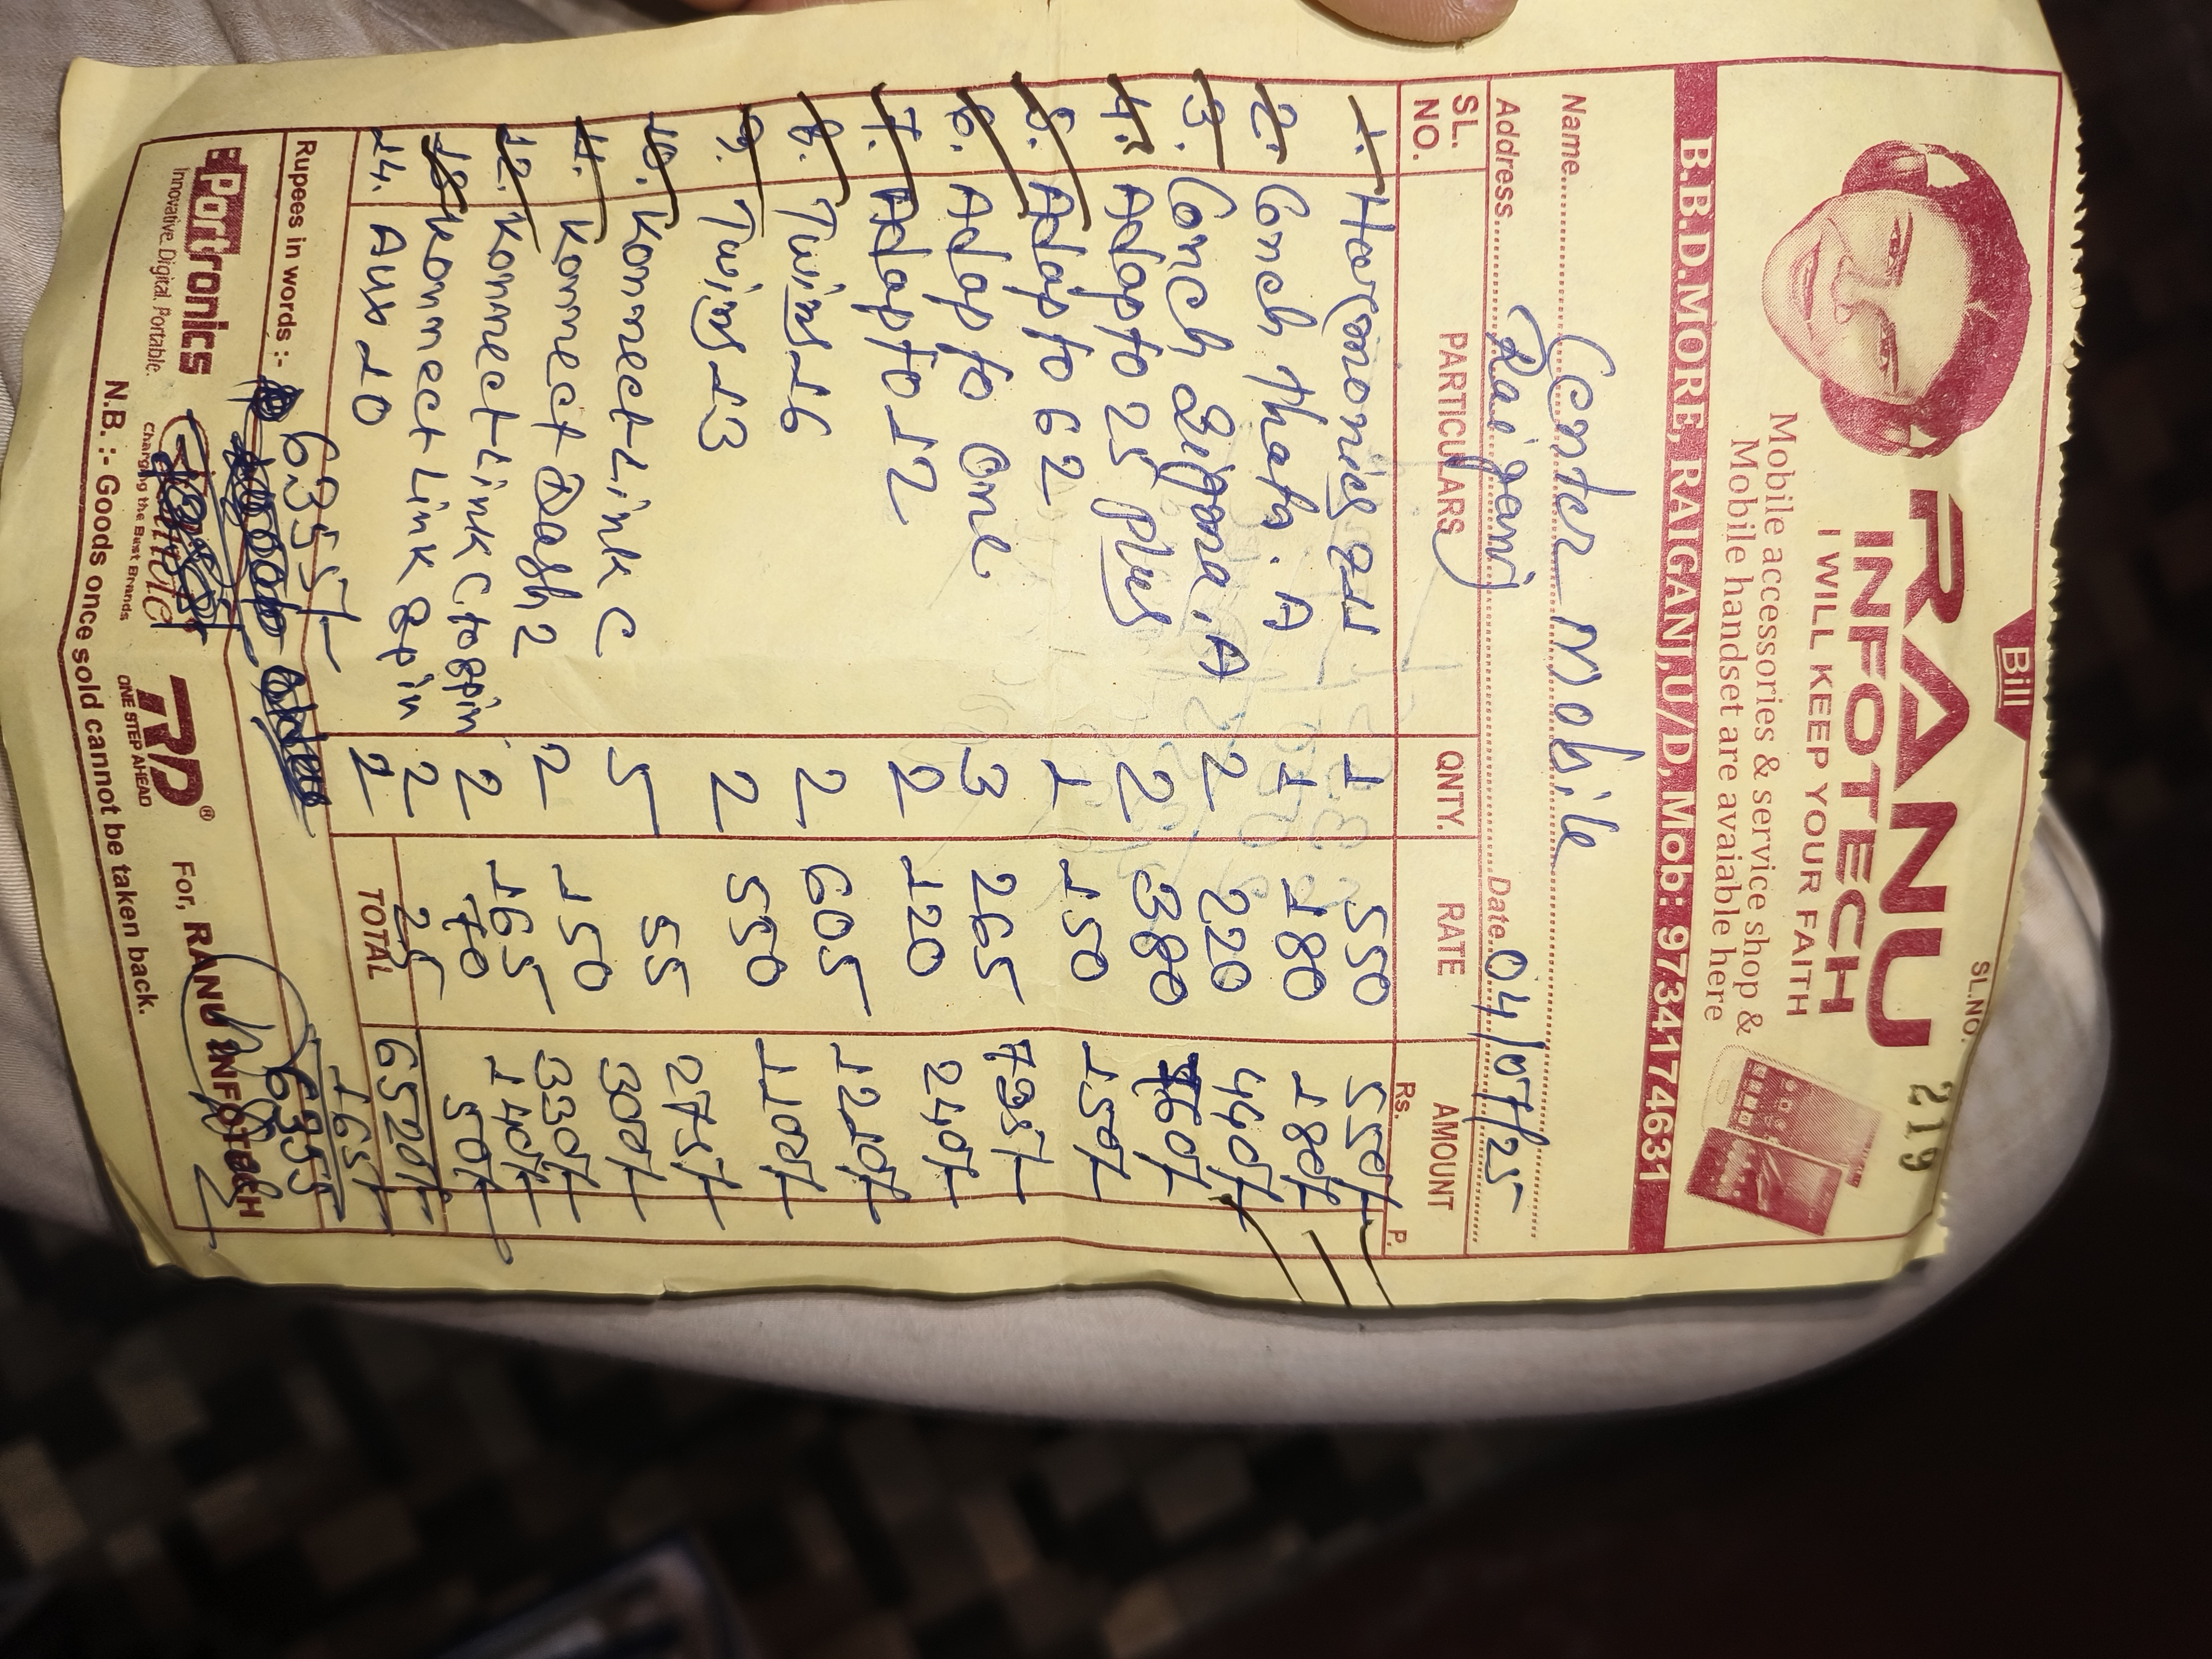 Bill
SL.NO. 219
RANU
INFOTECH
I WILL KEEP YOUR FAITH
Mobile accessories & service shop &
Mobile handset are avaiable here
B.B.D.MORE, RAIGANJ,U/D, Mob: 9734174631
Name Center Mobile
Address Raiganj Date 04/07/25
SL. NO. PARTICULARS QNTY. RATE AMOUNT
Rs. P.
1. 211 1 550 550/-
2. Conch Theta. A 1 180 180/-
3. Conch A 2 220 440/-
4. Adapto 25 plus 2 380 760/-
5. Adapto 62 1 150 150/-
6. Adapto One 3 265 795/-
7. Adapto 12 2 120 240/-
8. Twins 16 2 605 1210/-
9. Twins 13 2 550 1100/-
10. Konnect Link C 5 55 275/-
11. Konnect Dash 2 2 150 300/-
12. Konnect Link C to 8pin 2 165 330/-
13. Konnect Link 8pin 2 70 140/-
14. Aux 10 2 25 50/-
TOTAL 6520/-
165/-
6355
Rupees in words :-
6355/-
Portronics
Innovative. Digital. Portable.
Charging the Best Brands
RD®
ONE STEP AHEAD
For, RANU INFOTECH
N.B. :- Goods once sold cannot be taken back.